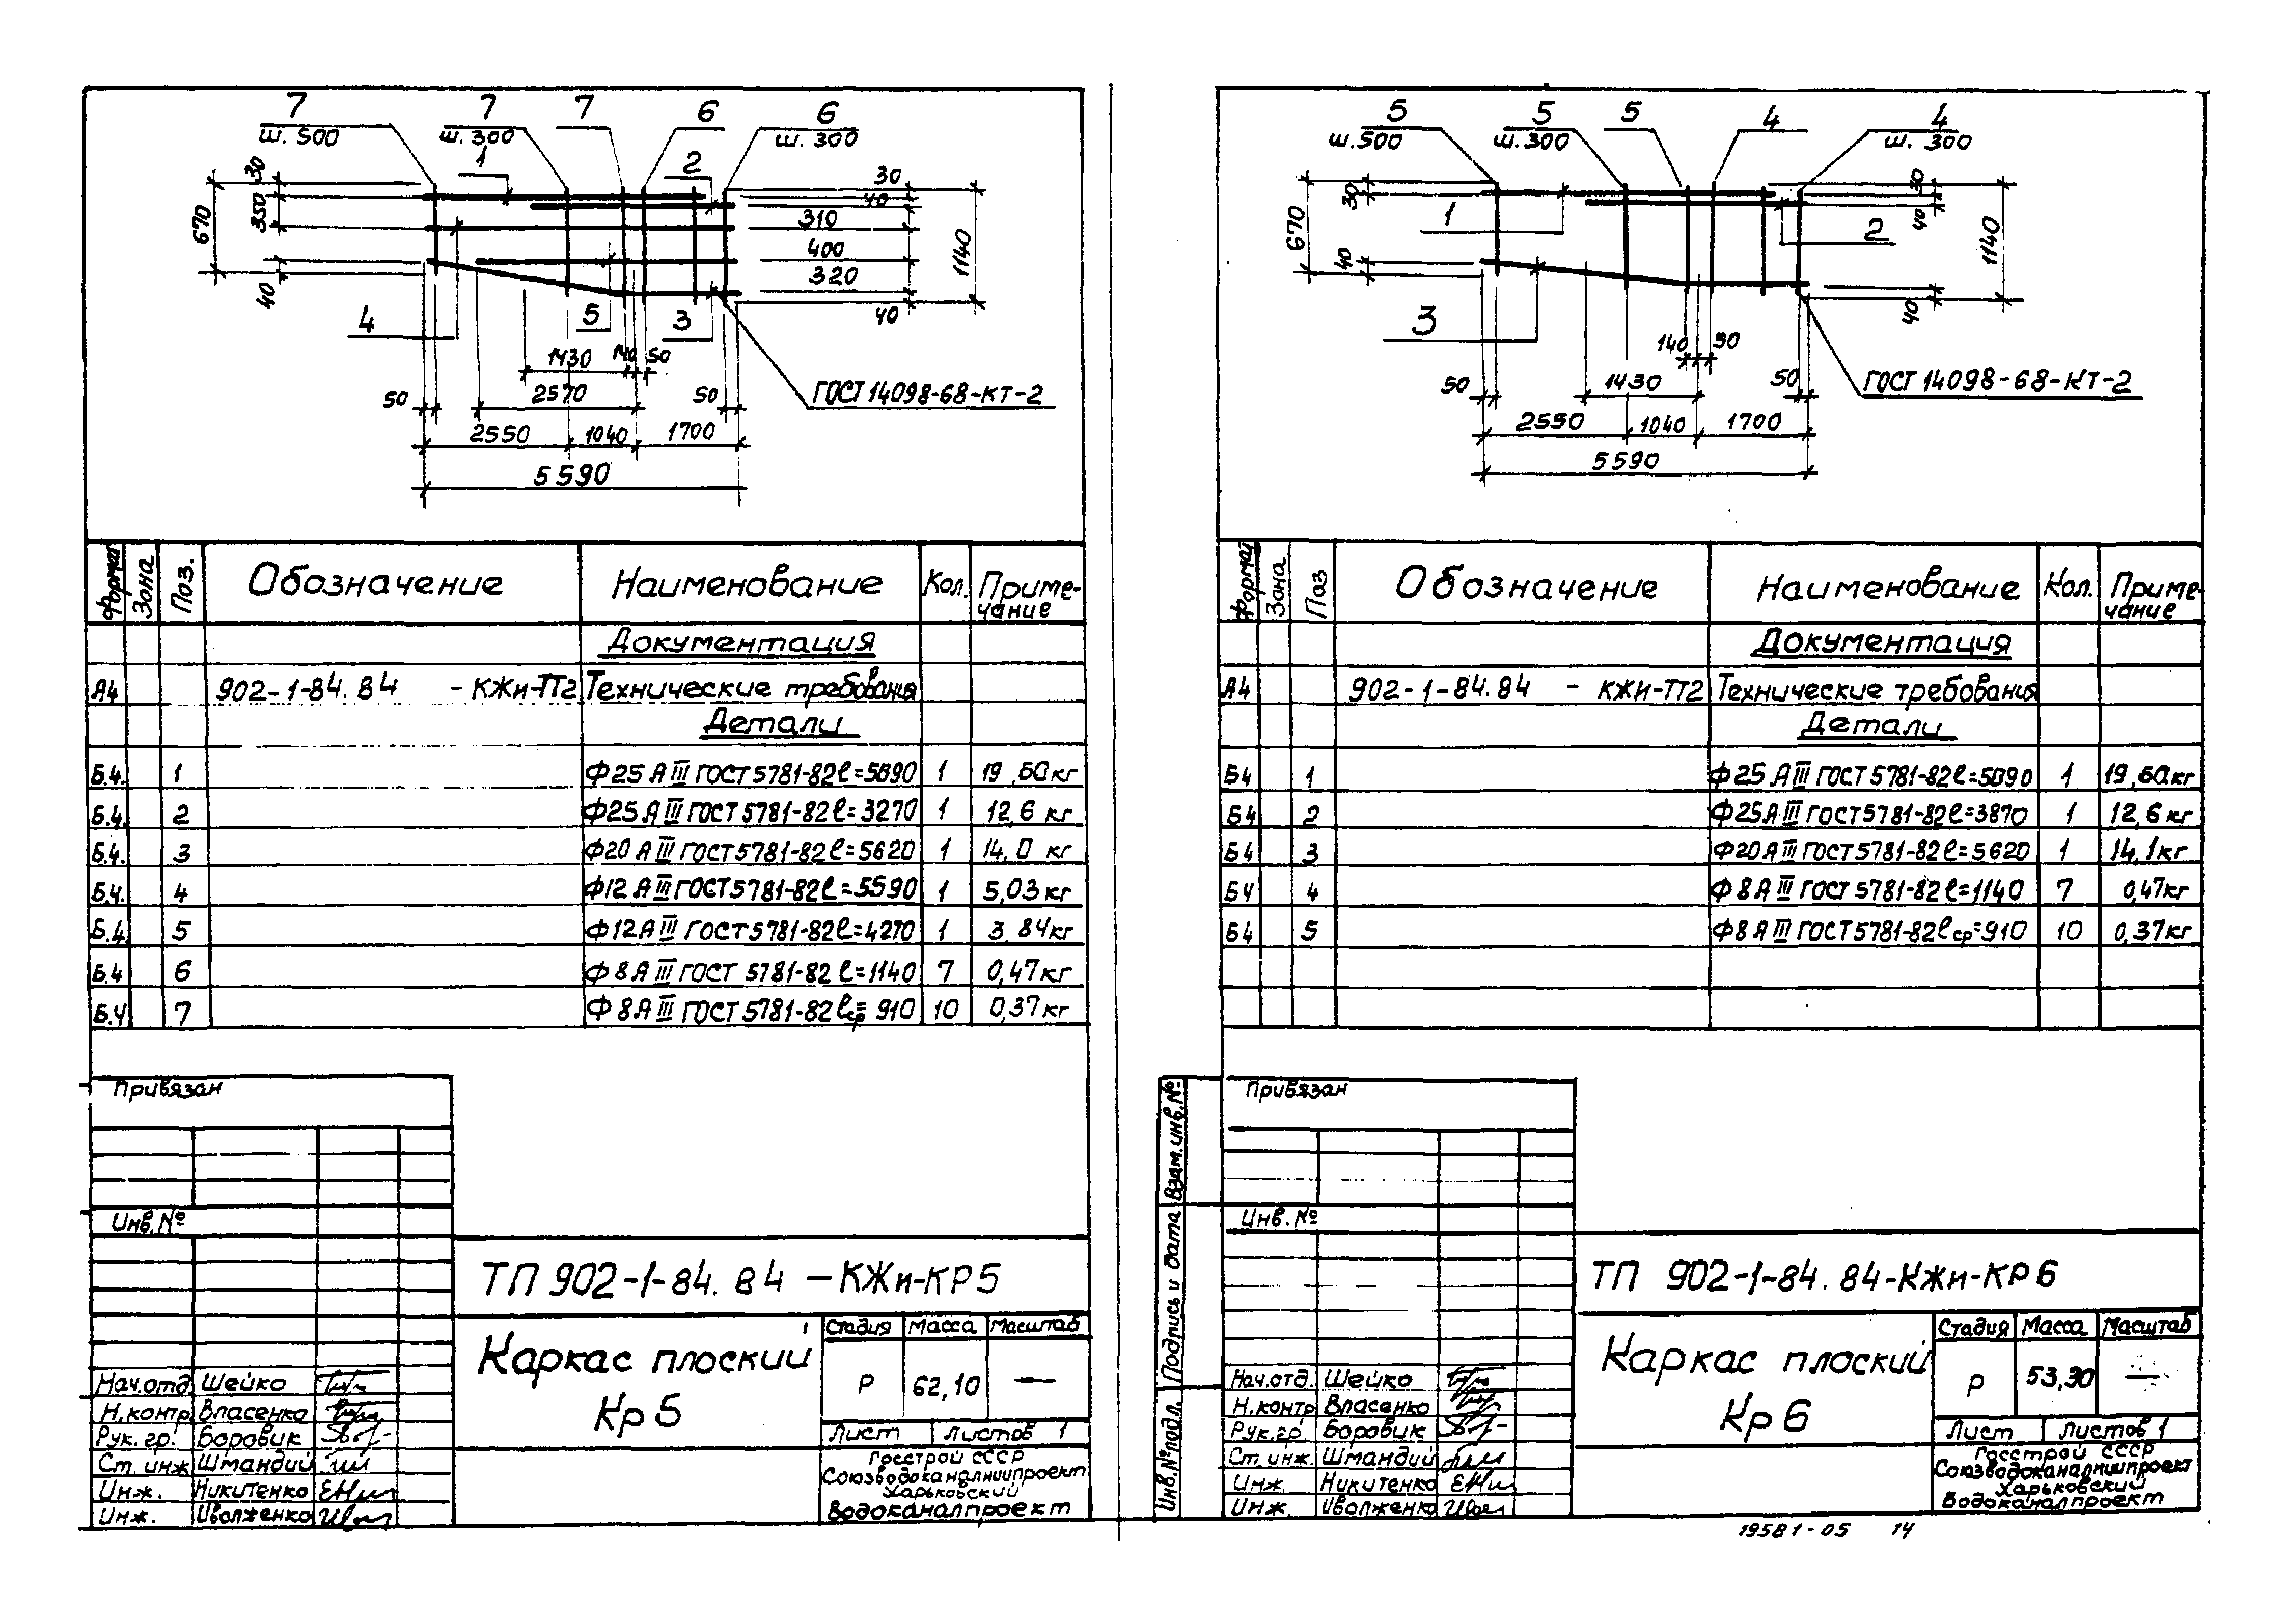 7 7 7 6 6
ш. 500 ш. 300 ш. 300
1 2
30 350 670 40
30
40
310
400
320
40
1140
4 5 3
1430 140 50
50 2570 50
ГОСТ 14098-68-КТ-2
2550 1040 1700
5590
Формат Зона Поз. Обозначение Наименование Кол. Приме-
чание
Документация
А4 902-1-84.84 -КЖи-ТТ2 Технические требования
Детали
Б.4. 1 Ф25 А III ГОСТ 5781-82 ℓ=5090 1 19,60 кг
Б.4. 2 Ф25 А III ГОСТ 5781-82 ℓ=3270 1 12,6 кг
Б.4. 3 Ф20 А III ГОСТ 5781-82 ℓ=5620 1 14,0 кг
Б.4. 4 Ф12 А III ГОСТ 5781-82 ℓ=5590 1 5,03 кг
Б.4 5 Ф12 А III ГОСТ 5781-82 ℓ=4270 1 3,84 кг
Б.4 6 Ф8 А III ГОСТ 5781-82 ℓ=1140 7 0,47 кг
Б.4 7 Ф8 А III ГОСТ 5781-82 ℓср= 910 10 0,37 кг
Привязан
Инв. №
ТП 902-1-84.84 -КЖи-КР5
Каркас плоский
Кр5
Стадия Масса Масштаб
Р 62,10 —
Лист Листов 1
Госстрой СССР
Союзводоканалниипроект
Харьковский
Водоканалпроект
Нач.отд. Шейко
Н.контр. Власенко
Рук. гр. Боровик
Ст. инж. Шмандий
Инж. Никитенко
Инж. Иволженко
5 5 5 4 4
ш. 500 ш. 300 ш. 300
670 30 40
1 2 3
30 40 1140 40
140 50
50 1430 50
ГОСТ 14098-68-КТ-2
2550 1040 1700
5590
Формат Зона Поз Обозначение Наименование Кол. Приме-
чание
Документация
А4 902-1-84.84 - КЖи-ТТ2 Технические требования
Детали
Б4 1 Ф25 А III ГОСТ 5781-82 ℓ=5090 1 19,60 кг
Б4 2 Ф25 А III ГОСТ 5781-82 ℓ=3870 1 12,6 кг
Б4 3 Ф20 А III ГОСТ 5781-82 ℓ=5620 1 14,1 кг
Б4 4 Ф8 А III ГОСТ 5781-82 ℓ=1140 7 0,47 кг
Б4 5 Ф8 А III ГОСТ 5781-82 ℓср=910 10 0,37 кг
Взам.инв.№
Подпись и дата
Инв.№ подл.
Привязан
Инв. №
ТП 902-1-84.84-КЖи-КР6
Каркас плоский
Кр6
Стадия Масса Масштаб
Р 53,30 —
Лист Листов 1
Госстрой СССР
Союзводоканалниипроект
Харьковский
Водоканалпроект
Нач.отд. Шейко
Н.контр Власенко
Рук.гр. Боровик
Ст. инж. Шмандий
Инж. Никитенко
Инж. Иволженко
19581-05 14